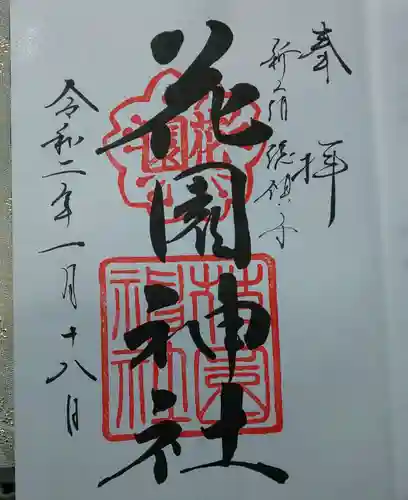 奉拝
新宿総鎮守
花園神社
令和二年一月十八日
花園
花園神社